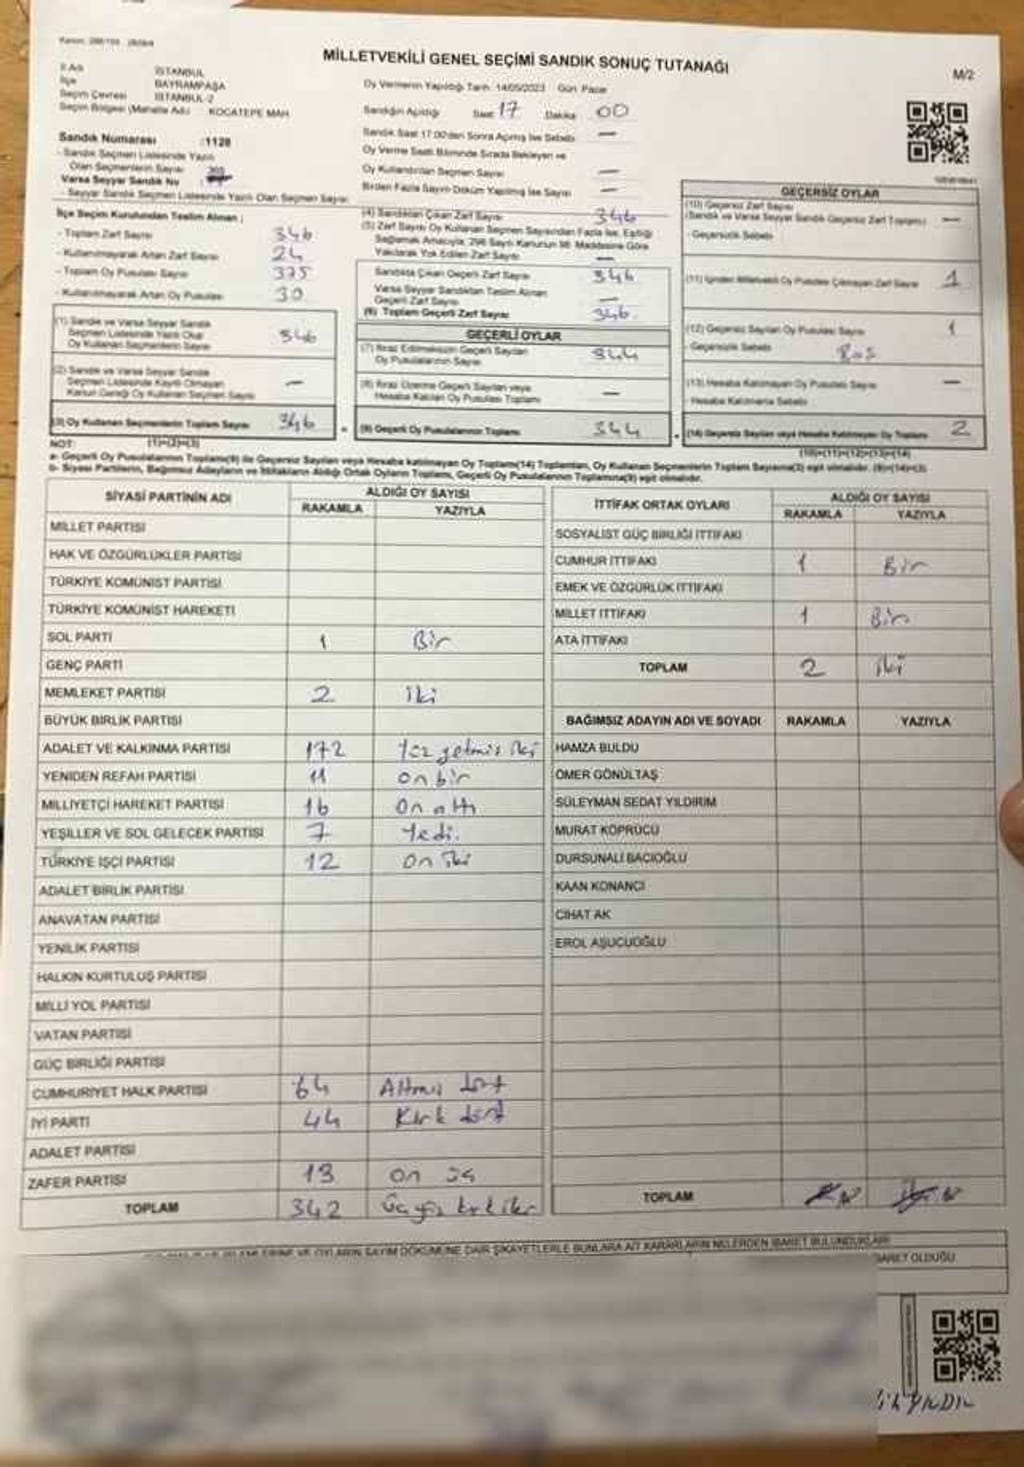 MİLLETVEKİLİ GENEL SEÇİMİ SANDIK SONUÇ TUTANAĞI
M/2
İl Adı İSTANBUL
İlçe BAYRAMPAŞA
Seçim Çevresi İSTANBUL-2
Seçim Bölgesi (Mahalle Adı) KOCATEPE MAH
Sandık Numarası :1128
- Sandık Seçmen Listesinde Yazılı
Olan Seçmenlerin Sayısı
Varsa Seyyar Sandık No
- Seyyar Sandık Seçmen Listesinde Yazılı Olan Seçmen Sayısı
Oy Vermenin Yapıldığı Tarih: 14/05/2023 Gün Pazar
Sandığın Açıldığı Saat 17 Dakika 00
Sandık Saat 17.00'den Sonra Açılmış İse Sebebi —
Oy Verme Saati Bitiminde Sırada Bekleyen ve
Oy Kullandırılan Seçmen Sayısı —
Birden Fazla Sayım Döküm Yapılmış İse Sayısı —
İlçe Seçim Kurulundan Teslim Alınan :
- Toplam Zarf Sayısı 346
- Kullanılmayarak Artan Zarf Sayısı 24
- Toplam Oy Pusulası Sayısı 375
- Kullanılmayarak Artan Oy Pusulası 30
(1) Sandık ve Varsa Seyyar Sandık
Seçmen Listesinde Yazılı Olup
Oy Kullanan Seçmenlerin Sayısı 346
(2) Sandık ve Varsa Seyyar Sandık
Seçmen Listesinde Kayıtlı Olmayan
Kanun Gereği Oy Kullanan Seçmen Sayısı —
(3) Oy Kullanan Seçmenlerin Toplam Sayısı 346
(4) Sandıktan Çıkan Zarf Sayısı 346
(5) Zarf Sayısı Oy Kullanan Seçmen Sayısından Fazla İse, Eşitliği
Sağlamak Amacıyla, 298 Sayılı Kanunun 98. Maddesine Göre
Yakılarak Yok Edilen Zarf Sayısı —
Sandıkta Çıkan Geçerli Zarf Sayısı 346
Varsa Seyyar Sandıktan Teslim Alınan
Geçerli Zarf Sayısı —
(6) Toplam Geçerli Zarf Sayısı 346
GEÇERLİ OYLAR
(7) İtiraz Edilmeksizin Geçerli Sayılan
Oy Pusulalarının Sayısı 344
(8) İtiraz Üzerine Geçerli Sayılan veya
Hesaba Katılan Oy Pusulası Toplamı —
(9) Geçerli Oy Pusulalarının Toplamı 344
GEÇERSİZ OYLAR
(10) Geçersiz Zarf Sayısı
(Sandık ve Varsa Seyyar Sandık Geçersiz Zarf Toplamı) —
- Geçersizlik Sebebi
(11) İçinden Milletvekili Oy Pusulası Çıkmayan Zarf Sayısı 1
(12) Geçersiz Sayılan Oy Pusulası Sayısı 1
- Geçersizlik Sebebi Boş
(13) Hesaba Katılmayan Oy Pusulası Sayısı —
- Hesaba Katılmama Sebebi
(14) Geçersiz Sayılan veya Hesaba Katılmayan Oy Toplamı 2
NOT: (1)+(2)=(3)
(10)+(11)+(12)+(13)=(14)
a- Geçerli Oy Pusulalarının Toplamı(9) ile Geçersiz Sayılan veya Hesaba katılmayan Oy Toplamı(14) Toplamları, Oy Kullanan Seçmenlerin Toplam Sayısına(3) eşit olmalıdır. (9)+(14)=(3)
b- Siyasi Partilerin, Bağımsız Adayların ve İttifakların Aldığı Ortak Oyların Toplamı, Geçerli Oy Pusulalarının Toplamına(9) eşit olmalıdır.
SİYASİ PARTİNİN ADI ALDIĞI OY SAYISI
RAKAMLA YAZIYLA
MİLLET PARTİSİ
HAK VE ÖZGÜRLÜKLER PARTİSİ
TÜRKİYE KOMÜNİST PARTİSİ
TÜRKİYE KOMÜNİST HAREKETİ
SOL PARTİ 1 Bir
GENÇ PARTİ
MEMLEKET PARTİSİ 2 iki
BÜYÜK BİRLİK PARTİSİ
ADALET VE KALKINMA PARTİSİ 172 Yüz yetmiş iki
YENİDEN REFAH PARTİSİ 11 on bir
MİLLİYETÇİ HAREKET PARTİSİ 16 On altı
YEŞİLLER VE SOL GELECEK PARTİSİ 7 Yedi.
TÜRKİYE İŞÇİ PARTİSİ 12 on iki
ADALET BİRLİK PARTİSİ
ANAVATAN PARTİSİ
YENİLİK PARTİSİ
HALKIN KURTULUŞ PARTİSİ
MİLLİ YOL PARTİSİ
VATAN PARTİSİ
GÜÇ BİRLİĞİ PARTİSİ
CUMHURİYET HALK PARTİSİ 64 Altmış dört
İYİ PARTİ 44 Kırk dört
ADALET PARTİSİ
ZAFER PARTİSİ 13 on üç
TOPLAM 342
İTTİFAK ORTAK OYLARI ALDIĞI OY SAYISI
RAKAMLA YAZIYLA
SOSYALİST GÜÇ BİRLİĞİ İTTİFAKI
CUMHUR İTTİFAKI 1 Bir
EMEK VE ÖZGÜRLÜK İTTİFAKI
MİLLET İTTİFAKI 1 Bir
ATA İTTİFAKI
TOPLAM 2 iki
BAĞIMSIZ ADAYIN ADI VE SOYADI RAKAMLA YAZIYLA
HAMZA BULDU
ÖMER GÖNÜLTAŞ
SÜLEYMAN SEDAT YILDIRIM
MURAT KÖPRÜCÜ
DURSUNALİ BACIOĞLU
KAAN KONANCI
CİHAT AK
EROL AŞUCUOĞLU
TOPLAM
OYLARIN SAYIM DÖKÜMÜNE DAİR ŞİKAYETLERLE BUNLARA AİT KARARLARIN NELERDEN İBARET BULUNDUKLARI
OLDUĞU